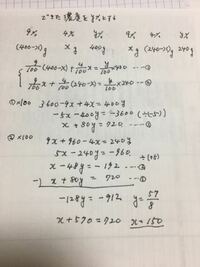 できた濃度をy%とする
9% 4% y% 9% 4% y%
(400-x)g xg 400g xg (240-x)g 240g
9/100(400-x)+4/100x=y/100 400 …①
9/100x+4/100(240-x)=y/100×240 …②
①×100 3600-9x+4x=400y
-5x-400y=-3600 (÷(-5))
x+80y=720 …①
②×100 9x+960-4x=240y
5x-240y=-960 ÷(5)
x-48y=-192 …②
-) x+80y=720 …①
-128y=-912 y=57/8
x+570=720 x=150